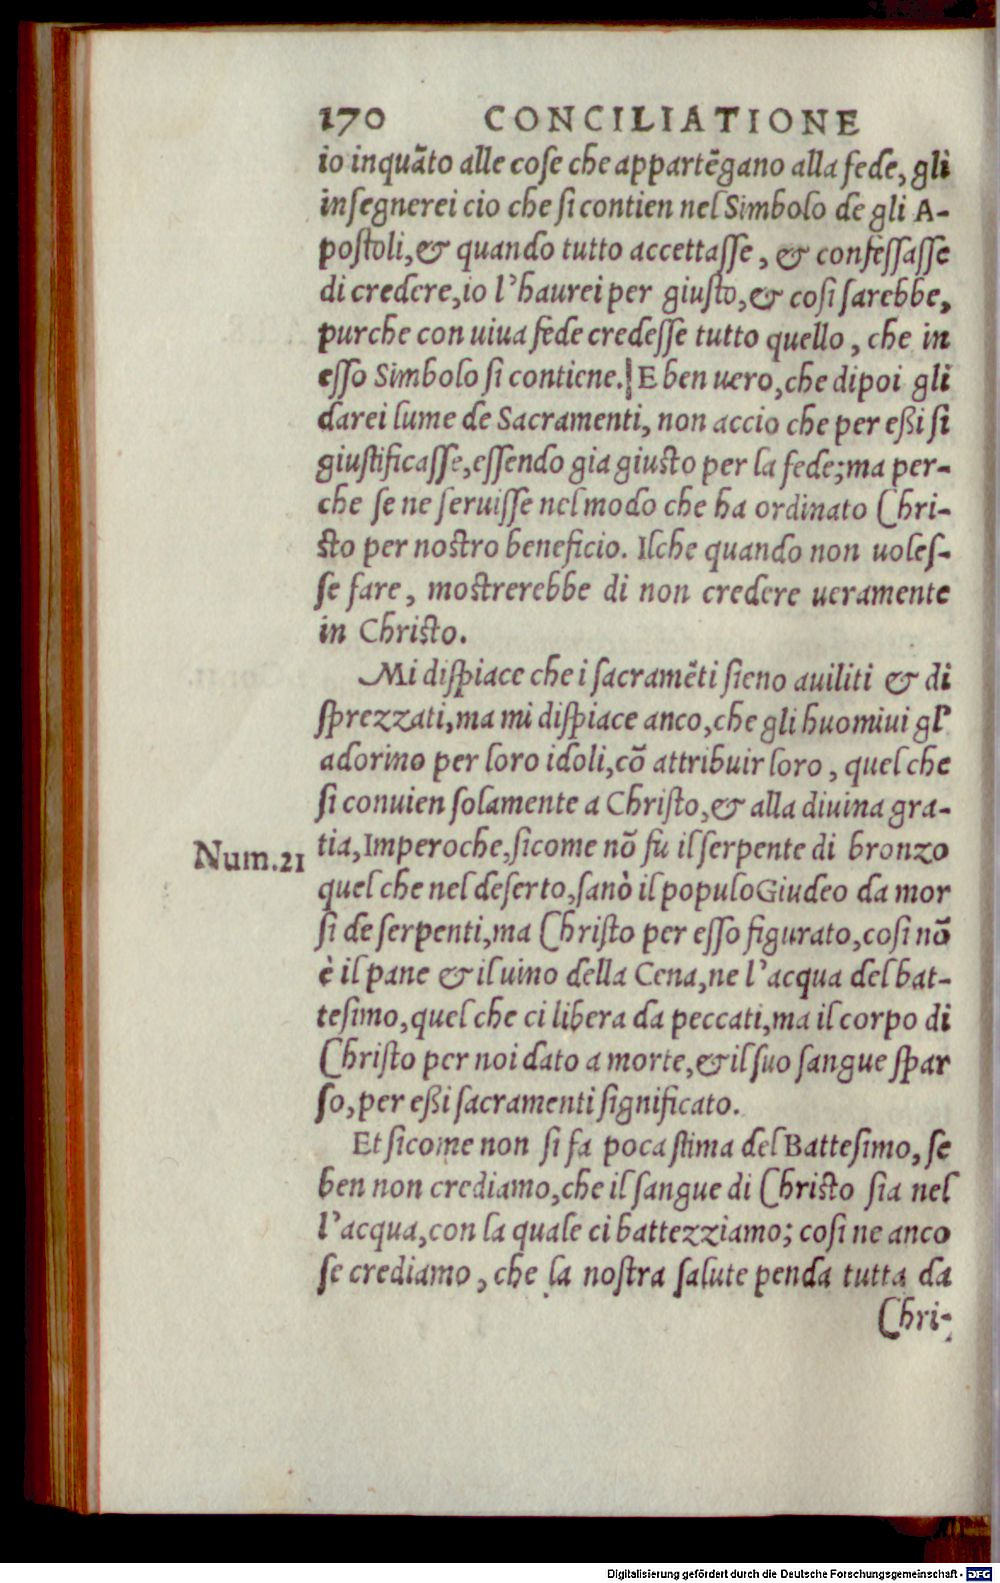 170 CONCILIATIONE
io inquāto alle cose che appartēgano alla fede, gli
insegnerei cio che si contien nel Simbolo de gli A-
postoli, & quando tutto accettasse, & confessasse
di credere, io l'haurei per giusto, & cosi sarebbe,
purche con uiua fede credesse tutto quello, che in
esso Simbolo si contiene. E ben uero, che dipoi gli
darei lume de Sacramenti, non accio che per eßi si
giustificasse, essendo gia giusto per la fede; ma per-
che se ne seruisse nel modo che ha ordinato Chri-
sto per nostro beneficio. Ilche quando non uoles-
se fare, mostrerebbe di non credere ueramente
in Christo.
Mi dispiace che i sacramēti sieno auiliti & di
sprezzati, ma mi dispiace anco, che gli huomiui gl'
adorino per loro idoli, cō attribuir loro, quel che
si conuien solamente a Christo, & alla diuina gra-
tia, Imperoche, sicome nō fu il serpente di bronzo
Num.21
quel che nel deserto, sanò il populo Giudeo da mor
si de serpenti, ma Christo per esso figurato, cosi nō
è il pane & il uino della Cena, ne l'acqua del bat-
tesimo, quel che ci libera da peccati, ma il corpo di
Christo per noi dato a morte, & il suo sangue spar
so, per eßi sacramenti significato.
Et sicome non si fa poca stima del Battesimo, se
ben non crediamo, che il sangue di Christo sia nel
l'acqua, con la quale ci battezziamo; cosi ne anco
se crediamo, che la nostra salute penda tutta da
Chri-
Digitalisierung gefördert durch die Deutsche Forschungsgemeinschaft - DFG